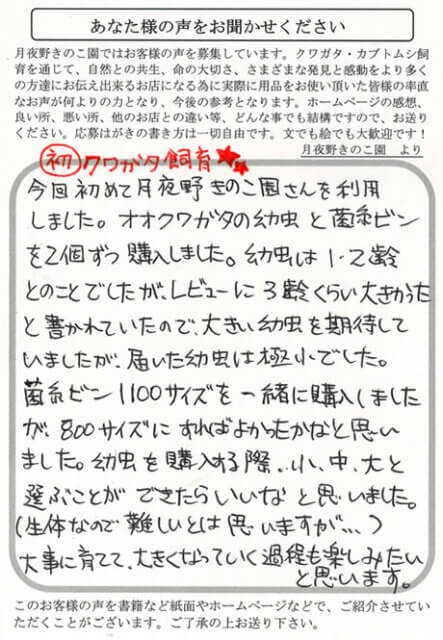 あなた様の声をお聞かせください
月夜野きのこ園ではお客様の声を募集しています。クワガタ・カブトムシ飼
育を通じて、自然との共生、命の大切さ、さまざまな発見と感動をより多く
の方達にお伝え出来るお店になる為に実際に用品をお使い頂いた皆様の率直
なお声が何よりの力となり、今後の参考となります。ホームページの感想、
良い所、悪い所、他のお店との違い等、どんな事でも結構ですので、お送り
ください。応募はがきの書き方は一切自由です。文でも絵でも大歓迎です！
月夜野きのこ園　より
初クワガタ飼育★★
今回初めて月夜野きのこ園さんを利用
しました。オオクワガタの幼虫と菌糸ビン
を2個ずつ購入しました。幼虫は1・2齢
とのことでしたが、レビューに3齢くらい大きかった
と書かれていたので、大きい幼虫を期待して
いましたが、届いた幼虫は極小でした。
菌糸ビン1100サイズを一緒に購入しました
が、800サイズにすればよかったかなと思い
ました。幼虫を購入する際、小、中、大と
選ぶことができたらいいなと思いました。
(生体なので難しいとは思いますが…)
大事に育てて、大きくなっていく過程も楽しみたい
と思います。
このお客様の声を書籍など紙面やホームページなどで、ご紹介させてい
ただくことがございます。ご了承の上お送り下さい。